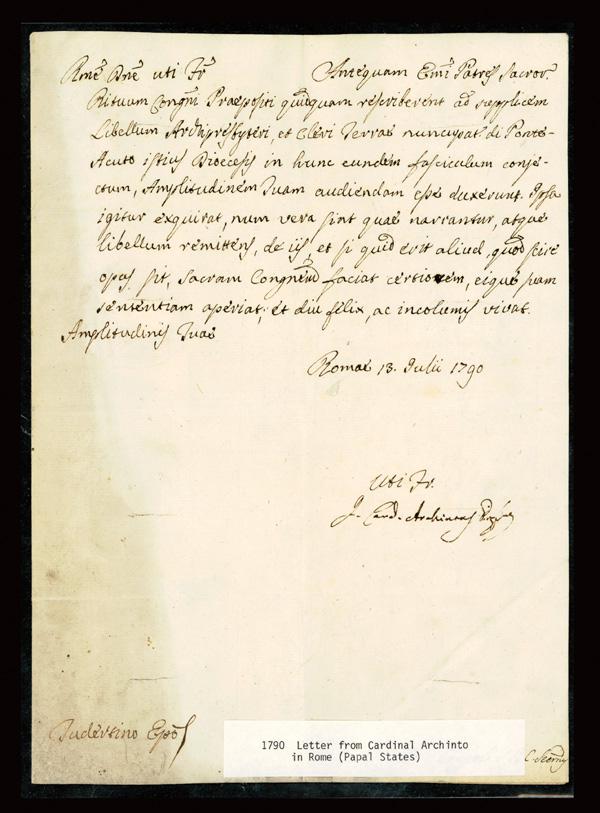 Rmē Dnē uti Fr̄ Antequam Emī Patres Sacror.
Rituum Congn̄i Praepositi quidquam rescriberent ad supplicem
Libellum Archipresbyteri, et Cleri Terrae nuncupat. di Ponte-
Acuto istius Dioecesis in hunc eundem fasciculum conje-
ctum, Amplitudinem Tuam audiendam esse duxerunt. Ipsa
igitur exquirat, num vera sint quae narrantur, atque
libellum remittens, de iis, et si quid erit aliud, quod scire
opus sit, Sacram Congnēm faciat certiorem, eique suam
sententiam aperiat; et diu felix, ac incolumis vivat.
Amplitudinis Tuae
Romae 13. Julii 1790
Uti Fr.
J. Card. Archintus
Tudertino Epō
1790 Letter from Cardinal Archinto
in Rome (Papal States)